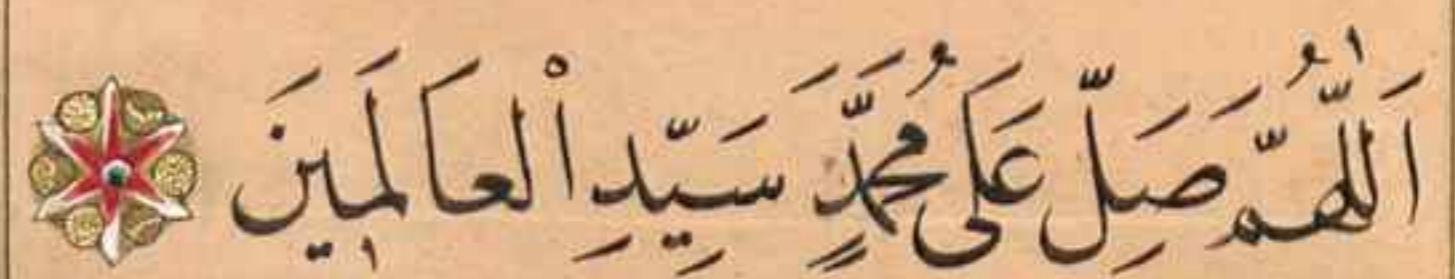 اَللّٰهُمَّ صَلِّ عَلٰى مُحَمَّدٍ سَيِّدِ الْعَالَمِينَ